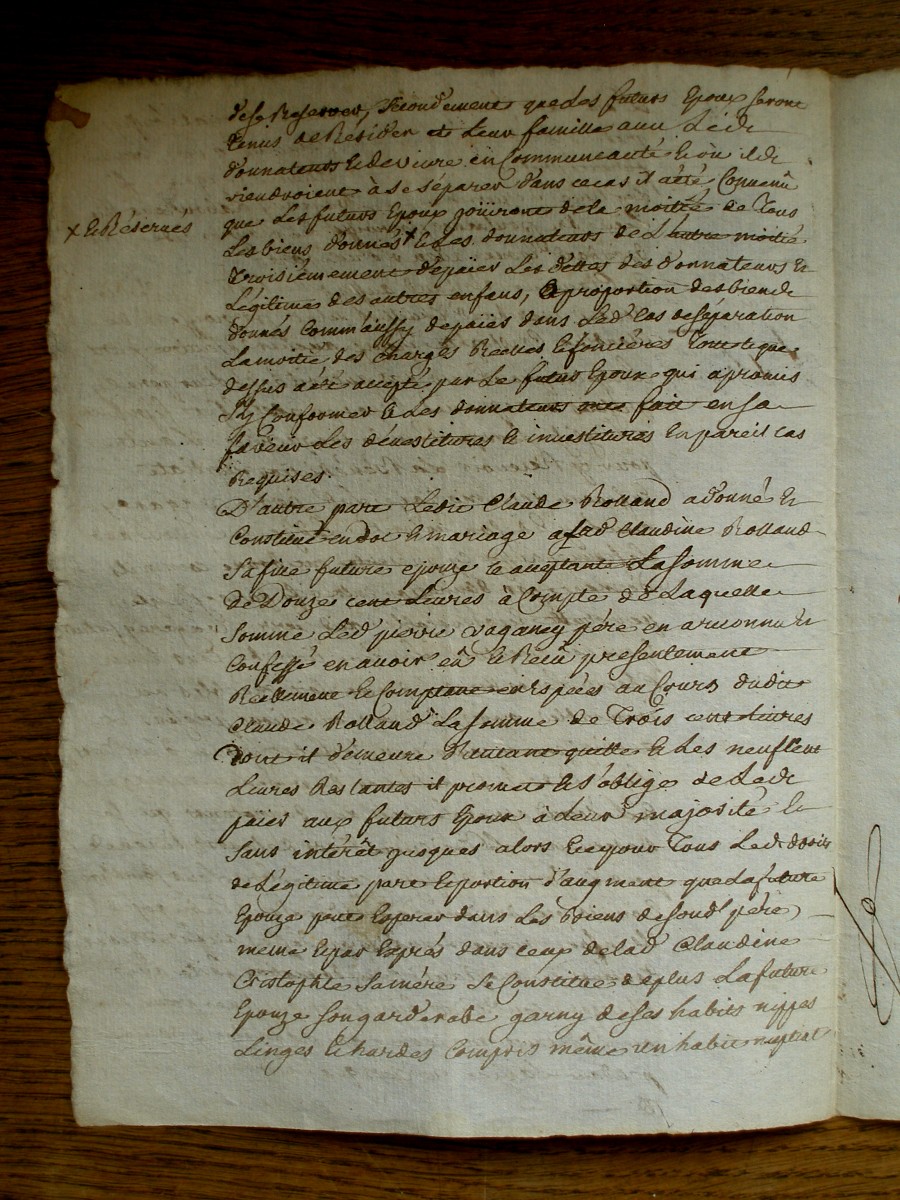 de se Reserver, secondement que Les futurs Epoux seront
tenus de Resider et Leur famille avec Lesd
donnateurs & de vivre en Communeauté & où ils
viendroient à se séparer dans ce cas il a été Convenû
que Les futurs Epoux joüiront de la moitié de Tous
x & Réservés
Les biens donnés x & Les donnateurs de L'autre moitié
Troisiémement de païer Les dettes des donnateurs &
Légitime des autres enfans, à proportion des biens
donnés Comm'aussy de païer dans Led cas de séparation
La moitié des charges Réelles & foncières Tout ce que
dessus a été accepté par Le futur Epoux qui a promis
s'y Conformer & Les donnateurs ont fait en sa
faveur Les dévestitures & investitures En pareil cas
Requises.
D'autre part Ledit Claude Rolland a donné &
Constitué en dot & mariage à lad Claudine Rolland
sa fille future epouze & acceptante La somme
De Douze cent Livres à Compte de Laquelle
somme Led pierre vaganey père en a reconnu &
Confessé en avoir eû & Reçû présentement
Réellement & Comptant en Espéces au Cours dudit
Claude Rolland La somme de Trois cent Livres
dont il demeure d'autant quitte & Les neuf Cent
Livres Restantes il promet & s'oblige de Les
païer aux futurs Epoux à Leur majorité &
sans intérêt jusques alors & ce pour Tous Les droits
de Légitime part & portion d'augment que La future
Epouze peut Esperer dans Les Biens de sond père,
meme & par Exprés dans ceux de lad Claudine
Cristophle sa mére se Constitue de plus La future
Epouze son garderobe garny de ses habits nippes
Linges & hardes Compris même un habit nuptial